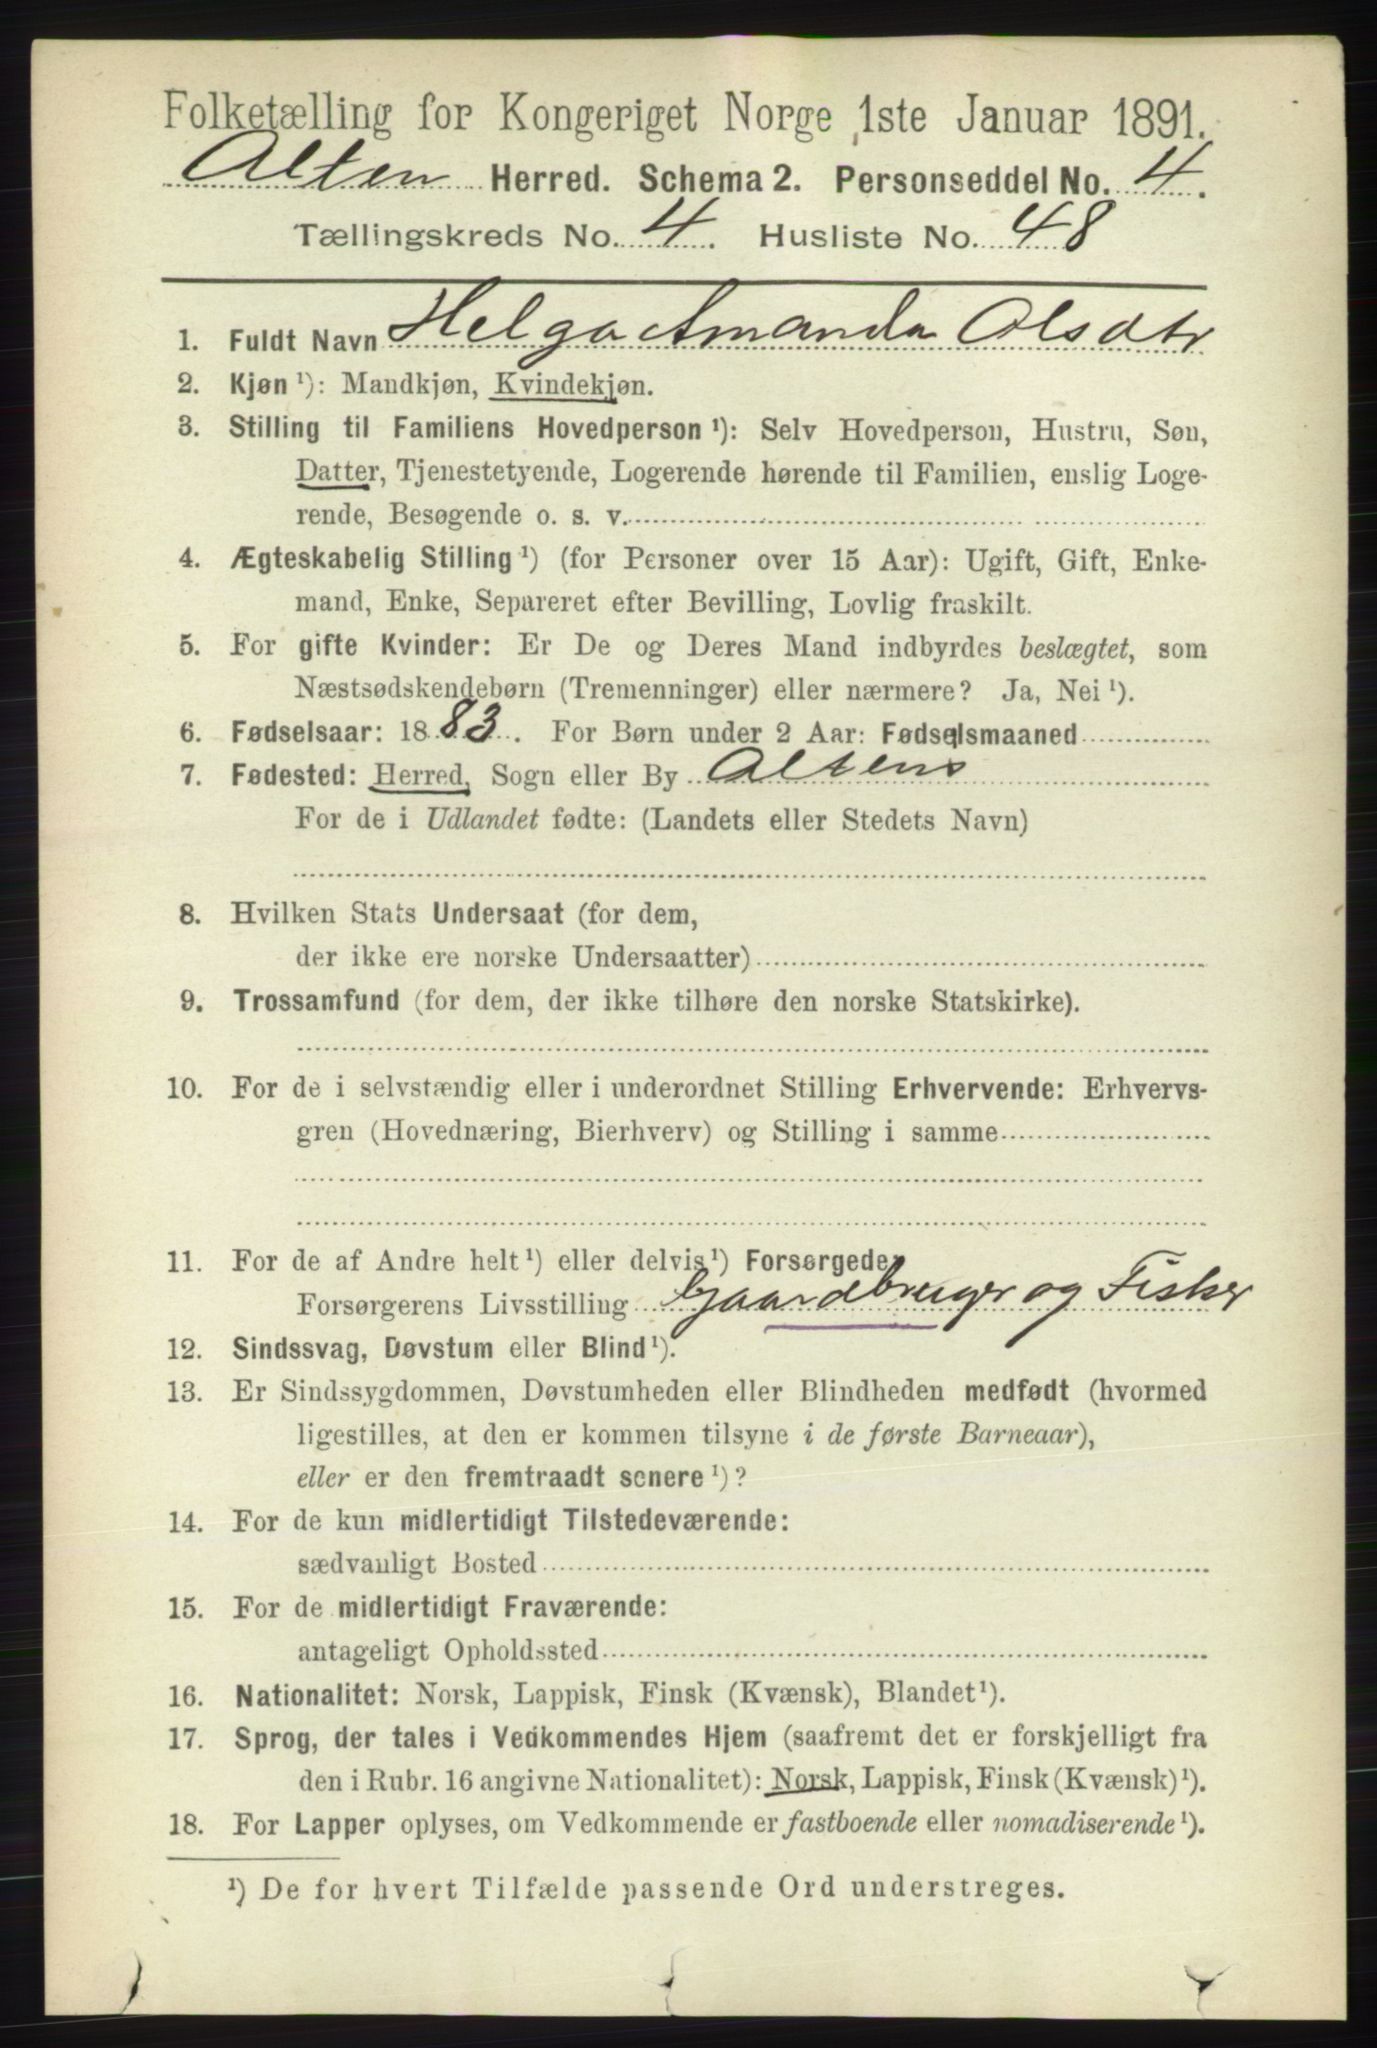 Folketælling for Kongeriget Norge 1ste Januar 1891.
Alten Herred. Schema 2. Personseddel No. 4.
Tællingskreds No. 4. Husliste No. 48
1. Fuldt Navn Helga Amanda Olsdtr
2. Kjøn ¹): Mandkjøn, Kvindekjøn.
3. Stilling til Familiens Hovedperson ¹): Selv Hovedperson, Hustru, Søn,
Datter, Tjenestetyende, Logerende hørende til Familien, enslig Loge-
rende, Besøgende o. s. v.
4. Ægteskabelig Stilling ¹) (for Personer over 15 Aar): Ugift, Gift, Enke-
mand, Enke, Separeret efter Bevilling, Lovlig fraskilt.
5. For gifte Kvinder: Er De og Deres Mand indbyrdes beslægtet, som
Næstsødskendebørn (Tremenninger) eller nærmere? Ja, Nei ¹).
6. Fødselsaar: 1883. For Børn under 2 Aar: Fødselsmaaned
7. Fødested: Herred, Sogn eller By Altens
For de i Udlandet fødte: (Landets eller Stedets Navn)
8. Hvilken Stats Undersaat (for dem,
der ikke ere norske Undersaatter)
9. Trossamfund (for dem, der ikke tilhøre den norske Statskirke).
10. For de i selvstændig eller i underordnet Stilling Erhvervende: Erhvervs-
gren (Hovednæring, Bierhverv) og Stilling i samme
11. For de af Andre helt ¹) eller delvis ¹) Forsørgede
Forsørgerens Livsstilling Gaardbruger og Fisker
12. Sindssvag, Døvstum eller Blind ¹).
13. Er Sindssygdommen, Døvstumheden eller Blindheden medfødt (hvormed
ligestilles, at den er kommen tilsyne i de første Barneaar),
eller er den fremtraadt senere ¹)?
14. For de kun midlertidigt Tilstedeværende:
sædvanligt Bosted
15. For de midlertidigt Fraværende:
antageligt Opholdssted
16. Nationalitet: Norsk, Lappisk, Finsk (Kvænsk), Blandet ¹).
17. Sprog, der tales i Vedkommendes Hjem (saafremt det er forskjelligt fra
den i Rubr. 16 angivne Nationalitet): Norsk, Lappisk, Finsk (Kvænsk) ¹).
18. For Lapper oplyses, om Vedkommende er fastboende eller nomadiserende ¹).
¹) De for hvert Tilfælde passende Ord understreges.